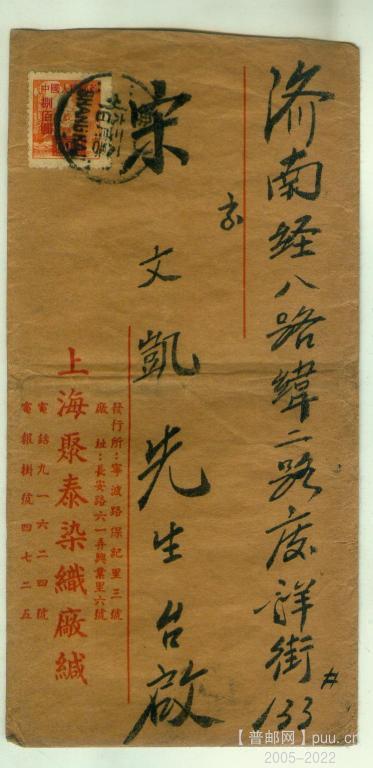 济南经八路緯二路庆祥街133#
宋文凱先生台啟
發行所：寧波路保記里三號
廠址：長安路六一弄興業里六號
上海聚泰染織廠緘
電話九一六二四號
電報掛號四七二五
捌佰圓
SHANGHAI
【普邮网】puu.cn
2005-2022